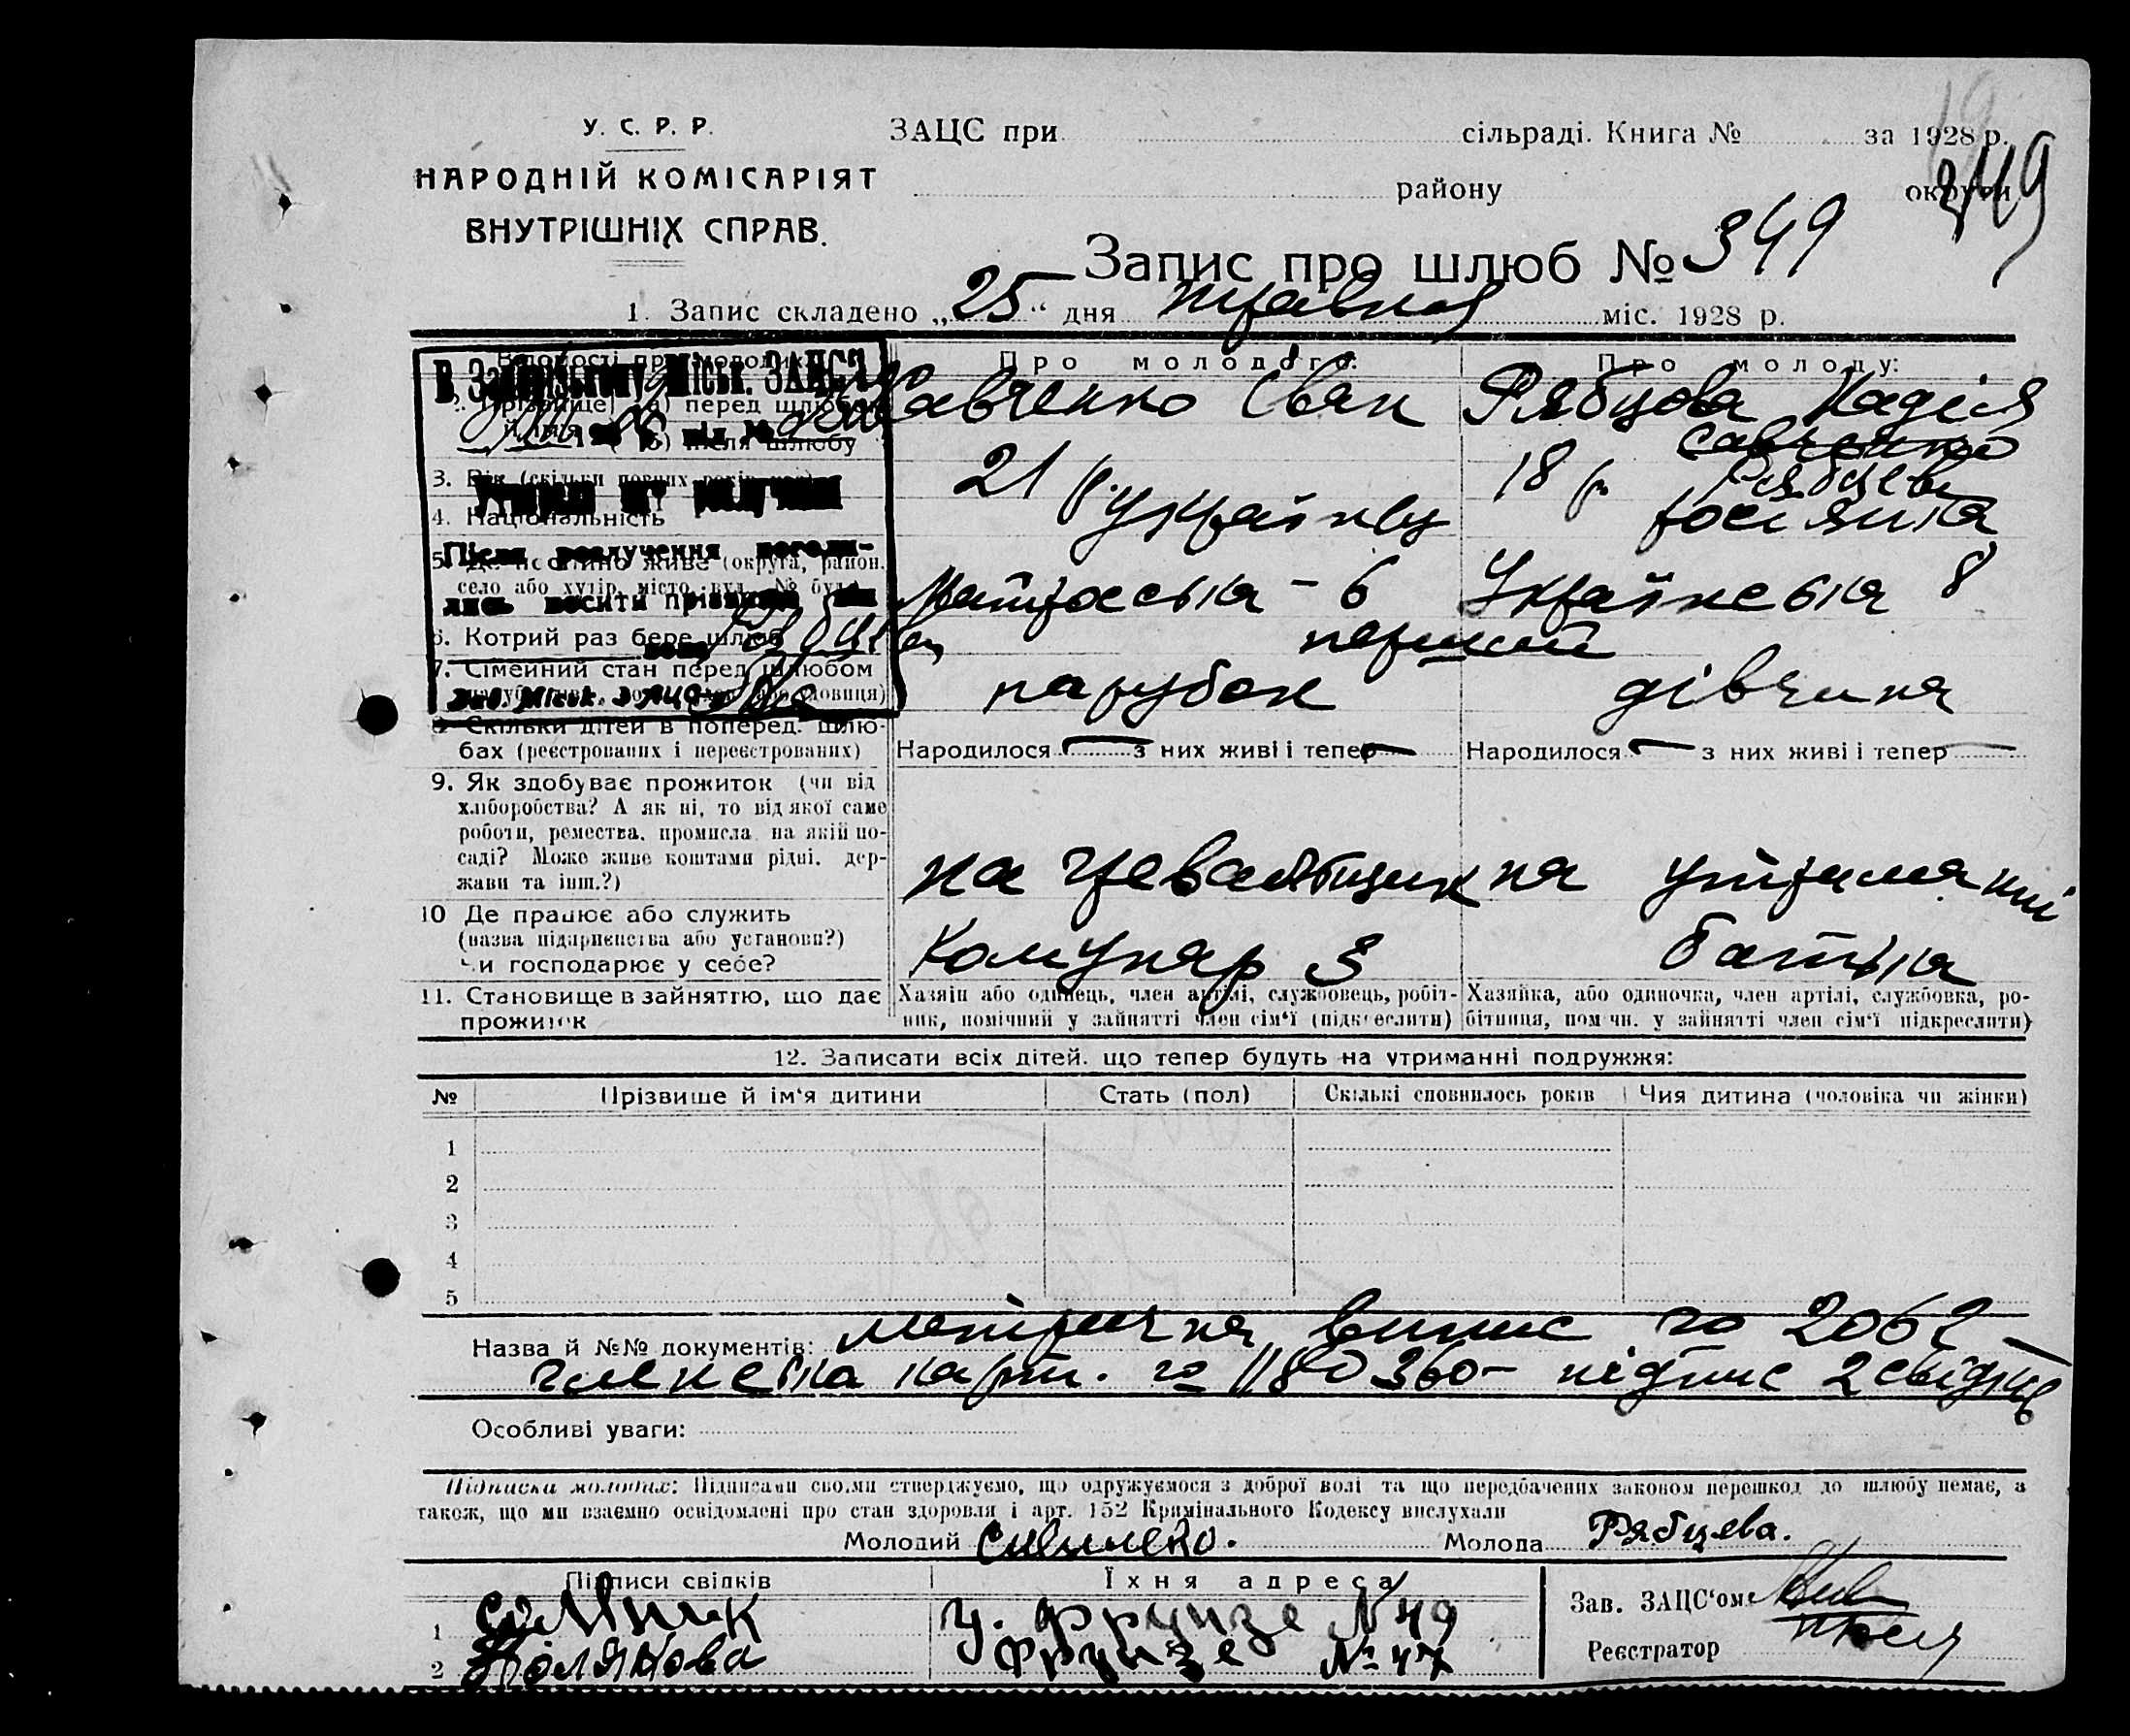 У. С. Р. Р.
НАРОДНІЙ КОМІСАРІЯТ
ВНУТРІШНІХ СПРАВ.
ЗАЦС при сільраді. Книга № за 1928 р.
району округи
349
Запис про шлюб № 349
1. Запис складено „25“ дня травня міс. 1928 р.
Про молодого: Про молоду:
В міськ. ЗАЦСі
перед шлюбом
після шлюбу
Савченко Іван Рябцова Надія
Савченко
3. Вік
21 р. 18 р. Рябцева
4. Національність українець росіянка
Після розлучення
5. живе (округа, район,
село або хутір, місто, вул., № буд.
носити Матроська - 6 Українська 8
6. Котрий раз бере шлюб перший
7. Сімейний стан перед шлюбом парубок дівчина
8. Скільки дітей в поперед. шлю-
бах (реєстрованих і нереєстрованих) Народилося з них живі і тепер Народилося з них живі і тепер
9. Як здобуває прожиток (чи від
хліборобства? А як ні, то від якої саме
роботи, ремества, промисла на якій по-
саді? Може живе коштами рідні, дер-
жави та інш.?)
на на утриманні
10 Де працює або служить
(назва підприємства або установи?)
Чи господарює у себе?
Комунар З батька
11. Становище в зайняттю, що дає
прожиток
Хазяїн або одинець, член артілі, службовець, робіт-
ник, помічний у зайнятті член сім'ї (підкреслити)
Хазяйка, або одиночка, член артілі, службовка, ро-
бітниця, помічн. у зайнятті член сім'ї підкреслити)
12. Записати всіх дітей, що тепер будуть на утриманні подружжя:
№ Прізвище й ім'я дитини Стать (пол) Скількі сповнилось років Чия дитина (чоловіка чи жінки)
1
2
3
4
5
Назва й №№ документів: метрична випис 2062 -
членська карт. № 1180360 - підпис 2 свідків
Особливі уваги:
Підписка молодих: Підписами своїми стверджуємо, що одружуємося з доброї волі та що передбачених законом перешкод до шлюбу немає, а
також, що ми взаємно освідомлені про стан здоровля і арт. 152 Крамінального Кодексу вислухали
Молодий Савченко. Молода Рябцева.
Підписи свідків Їхня адреса
1 У. Фрунзе № 49
2 Полякова Фрунзе № 47
Зав. ЗАЦС'ом
Реєстратор